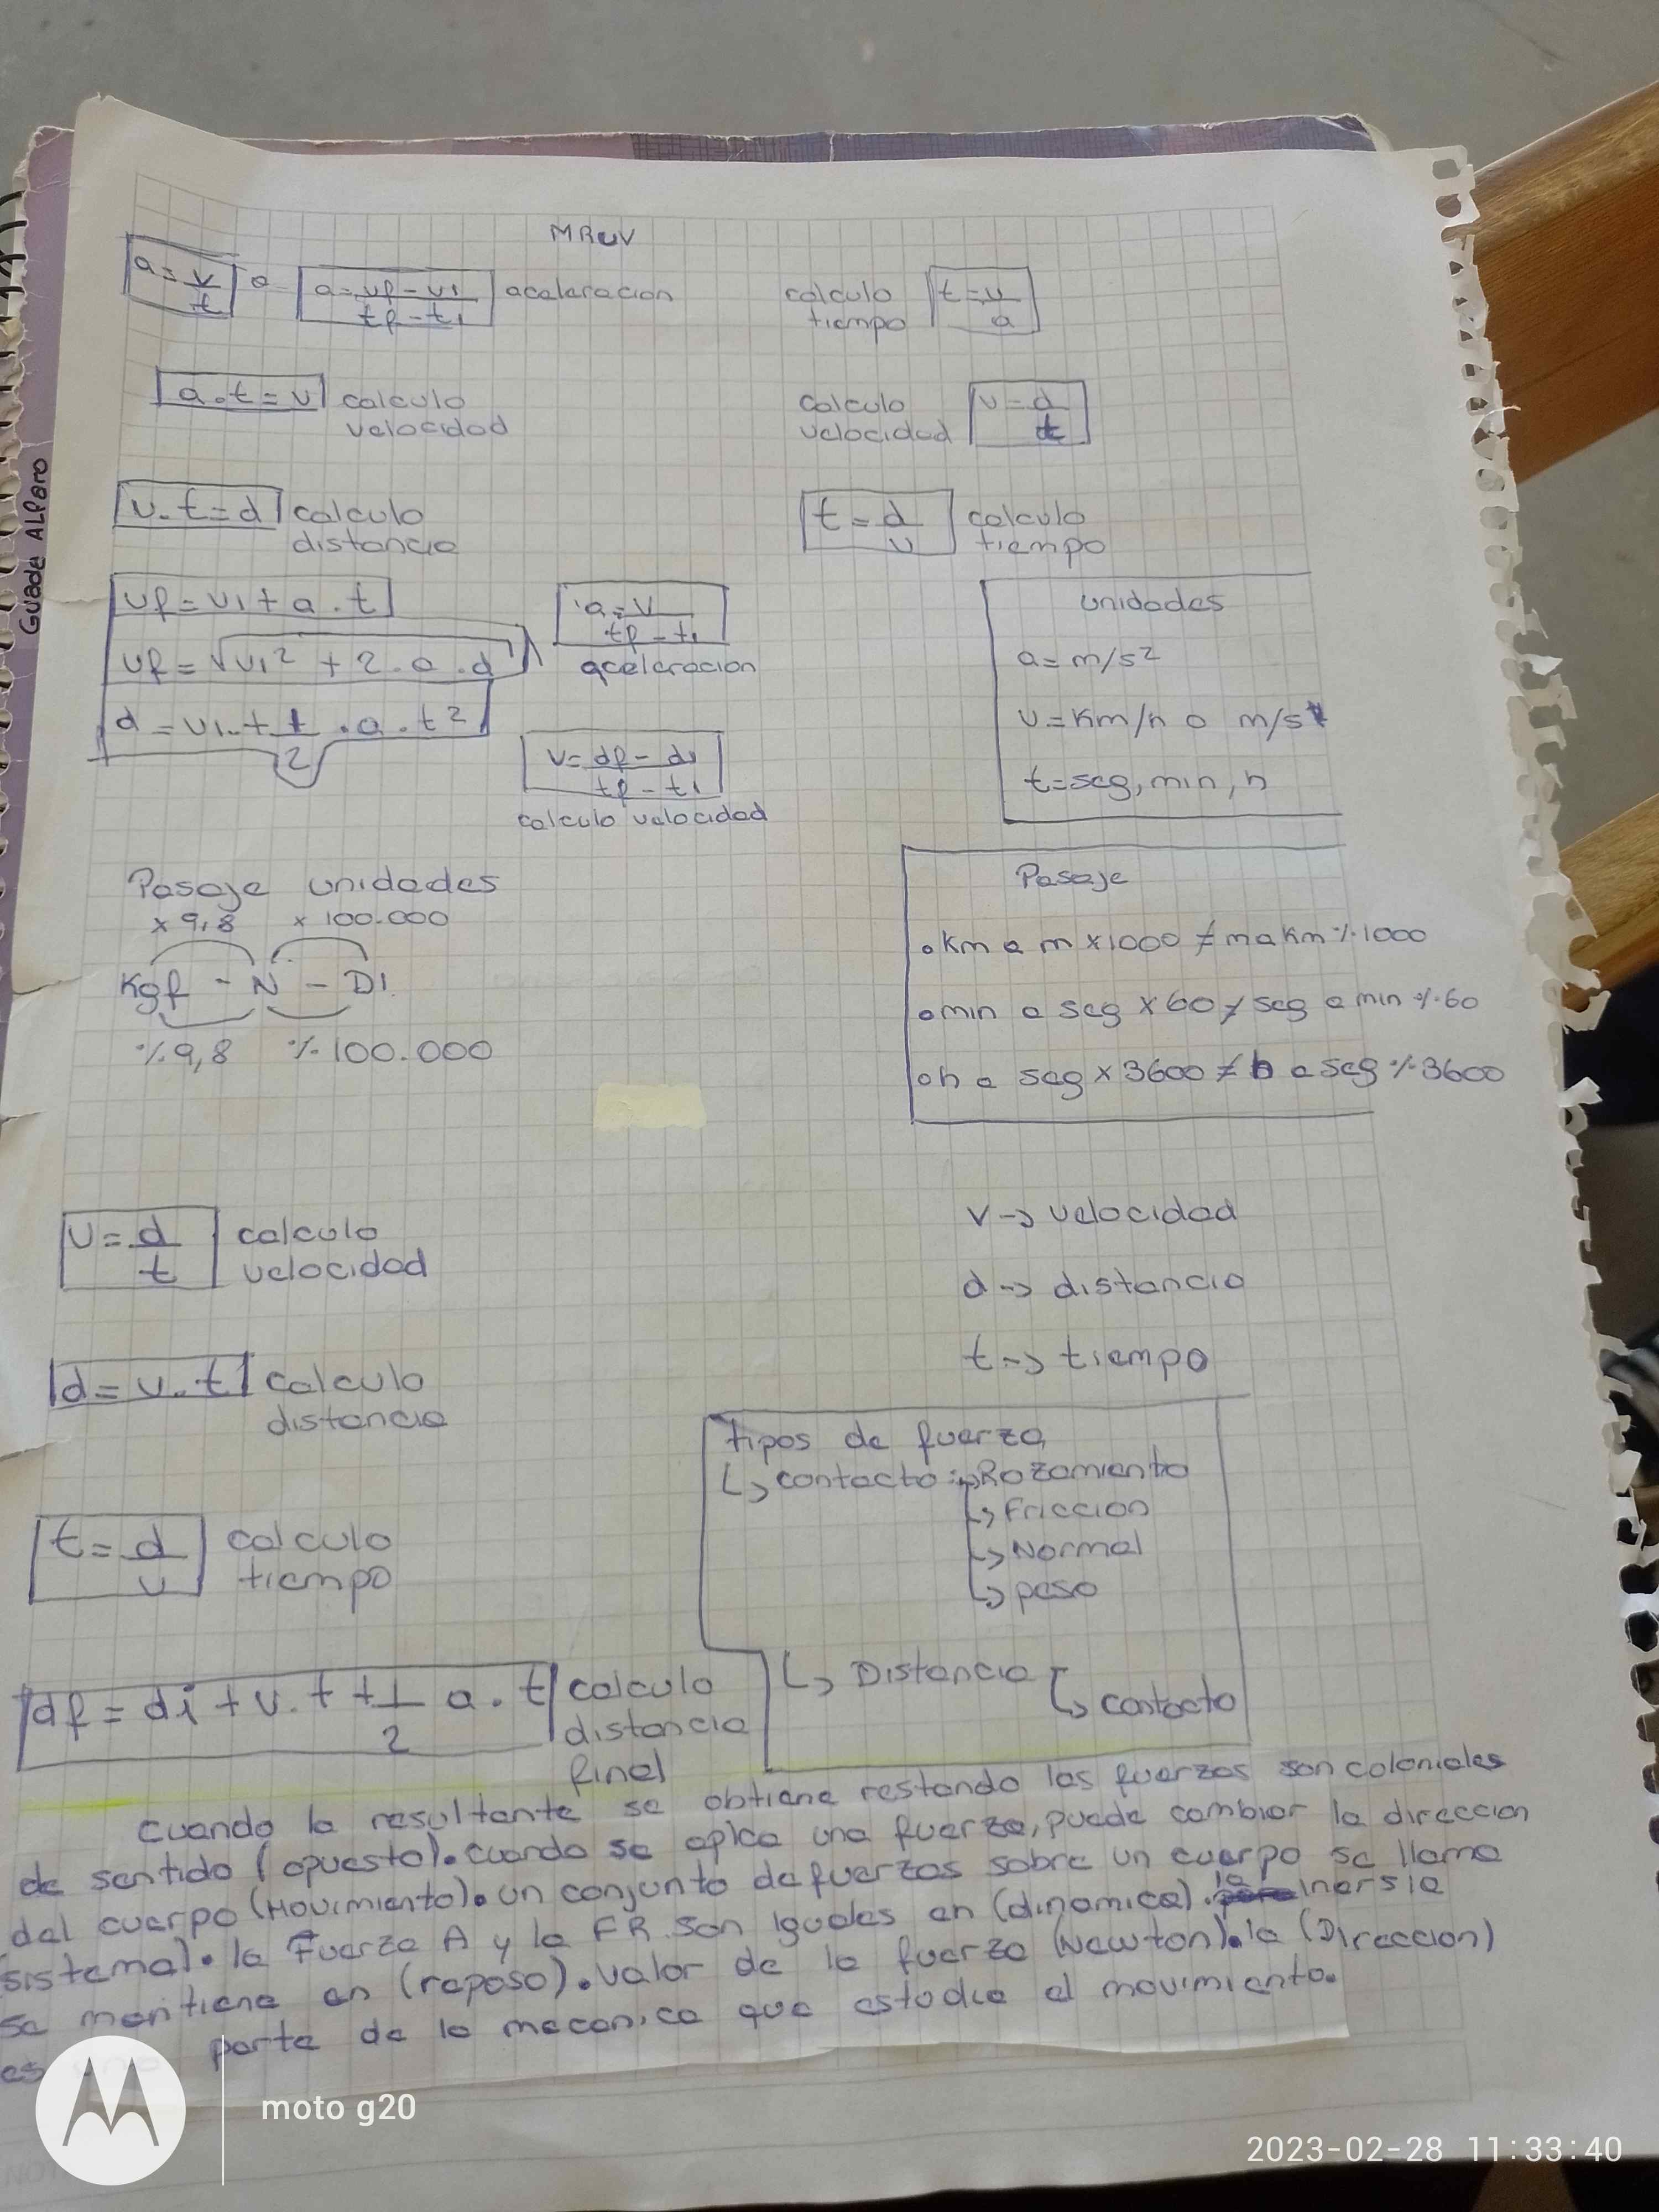 MRUV
a = v/t o a = vf - vi / tf - ti aceleracion
calculo tiempo t = v/a
a . t = v calculo velocidad
calculo velocidad v = d/t
v . t = d calculo distancia
t = d/v calculo tiempo
vf = vi + a . t
vf = √vi² + 2 . a . d
d = vi . t + 1/2 . a . t²
a = v / tf - ti
aceleracion
v = df - di / tf - ti
calculo velocidad
unidades
a = m/s²
v = Km/h o m/s
t = seg, min, h
Pasaje unidades
x 9,8 x 100.000
Kgf - N - Di
% 9,8 % 100.000
Pasaje
• Km a m x1000 ≠ m a Km % 1000
• min a seg x 60 ≠ seg a min % 60
• h a seg x 3600 ≠ h a seg % 3600
v = d/t calculo velocidad
d = v . t calculo distancia
t = d/v calculo tiempo
df = di + v . t + 1/2 a . t calculo distancia final
v → velocidad
d → distancia
t → tiempo
tipos de fuerza
↳ contacto: → Rozamiento
↳ Friccion
↳ Normal
↳ peso
↳ Distancia
↳ contacto
Cuando la resultante se obtiene restando las fuerzas son coloniales
de sentido (opuesto). Cuando se aplica una fuerza, puede cambiar la direccion
del cuerpo (Movimiento). un conjunto de fuerzas sobre un cuerpo se llama
sistema). la Fuerza A y la FR. son iguales en (dinamica). la inersia
se mantiene en (reposo). Valor de la fuerza (Newton). la (Direccion)
es una parte de la mecanica que estudia el movimiento.
Guada Alfaro
moto g20
2023-02-28 11:33:40